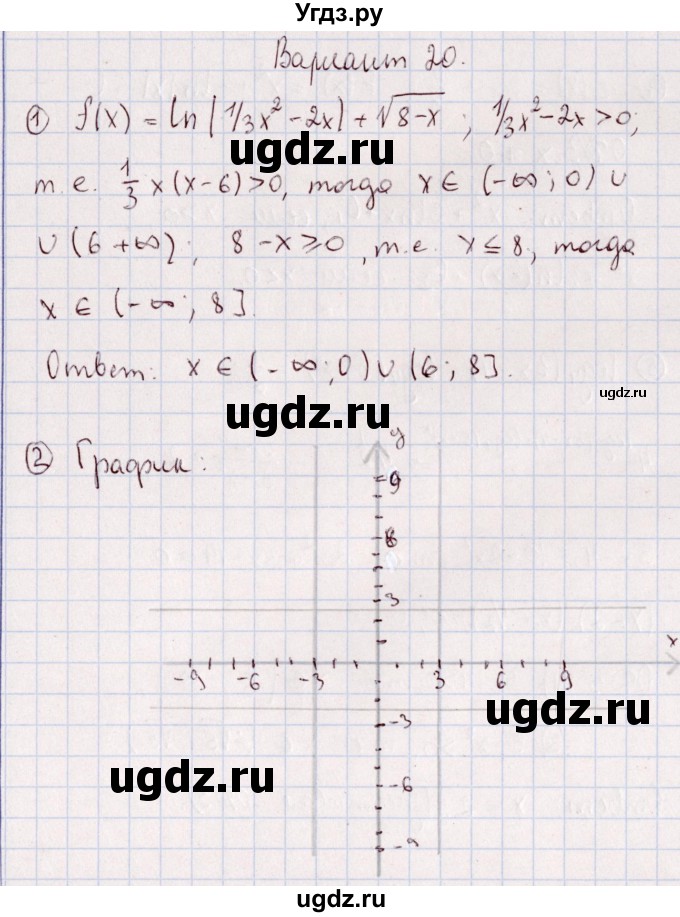 Угдз.ру
Вариант 20.
① f(x) = ln(1/3x² - 2x) + √8-x ; 1/3x² - 2x > 0;
ugdz.ru
т.е. 1/3 x(x-6) > 0, тогда x ∈ (-∞; 0) ∪
∪ (6 +∞); 8 - x ≥ 0, т.е. x ≤ 8, тогда
ugdz.ru
x ∈ (-∞; 8].
Ответ: x ∈ (-∞; 0) ∪ (6; 8].
ugdz.ru
ugdz.ru
② График:
y
9
6
3
x
-9 -6 -3 3 6 9
ugdz.ru
-3
ugdz.ru
-6
-9
ugdz.ru